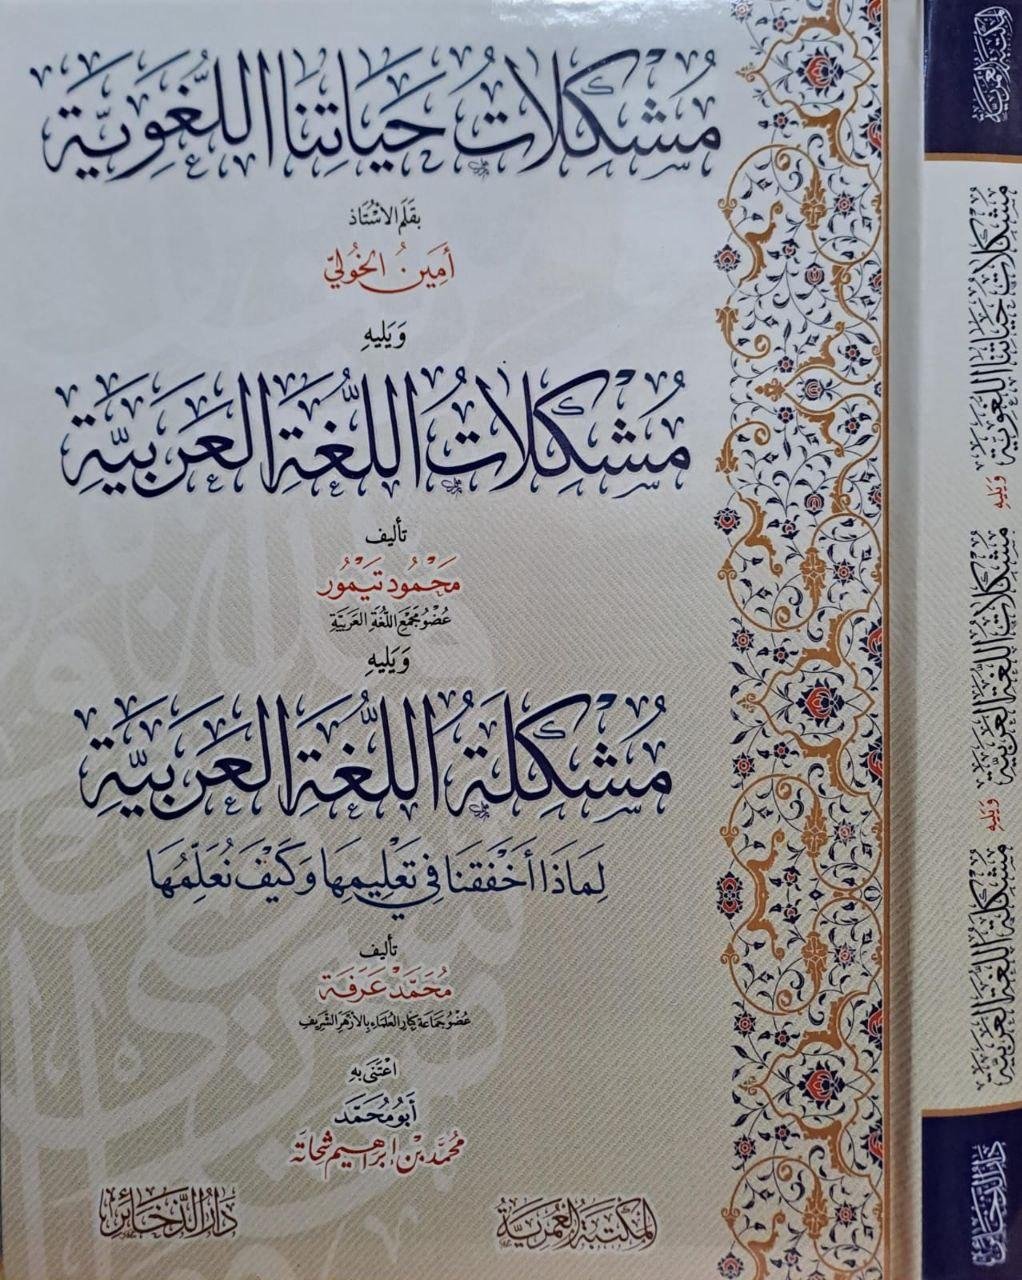 مشكلات حياتنا اللغوية
بقلم الأستاذ
أمين الخولي
ويليه
مشكلات اللغة العربية
تأليف
محمود تيمور
عضو مجمع اللغة العربية
ويليه
مشكلة اللغة العربية
لماذا أخفقنا في تعليمها وكيف نعلمها
تأليف
محمد عرفة
عضو جماعة كبار العلماء بالأزهر الشريف
اعتنى به
أبو محمد
محمد بن إبراهيم شحاتة
المكتبة العمرية
دار الذخائر
المكتبة العمرية
مشكلات حياتنا اللغوية ويليه مشكلات اللغة العربية ويليه مشكلة اللغة العربية
دار الذخائر